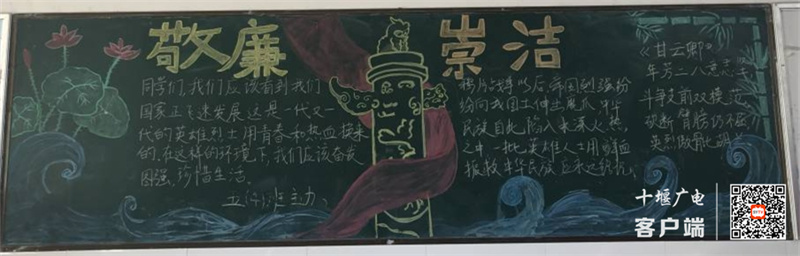 敬廉
崇洁
同学们,我们应该看到我们
国家正飞速发展,这是一代又一
代的英雄烈士用青春和热血换来
的,在这样的环境下,我们应该奋发
图强,珍惜生活。
五(4)班主办、
以后,帝国列强纷
纷向我国土伸出魔爪,中华
民族自此陷入水深火热,
之中一批英雄人士用鲜血
报救中华民族
《甘云卿》
年芳二八意志坚
斗敌前双模范
砍断臂膀仍不屈
英烈傲骨
十堰广电
客户端